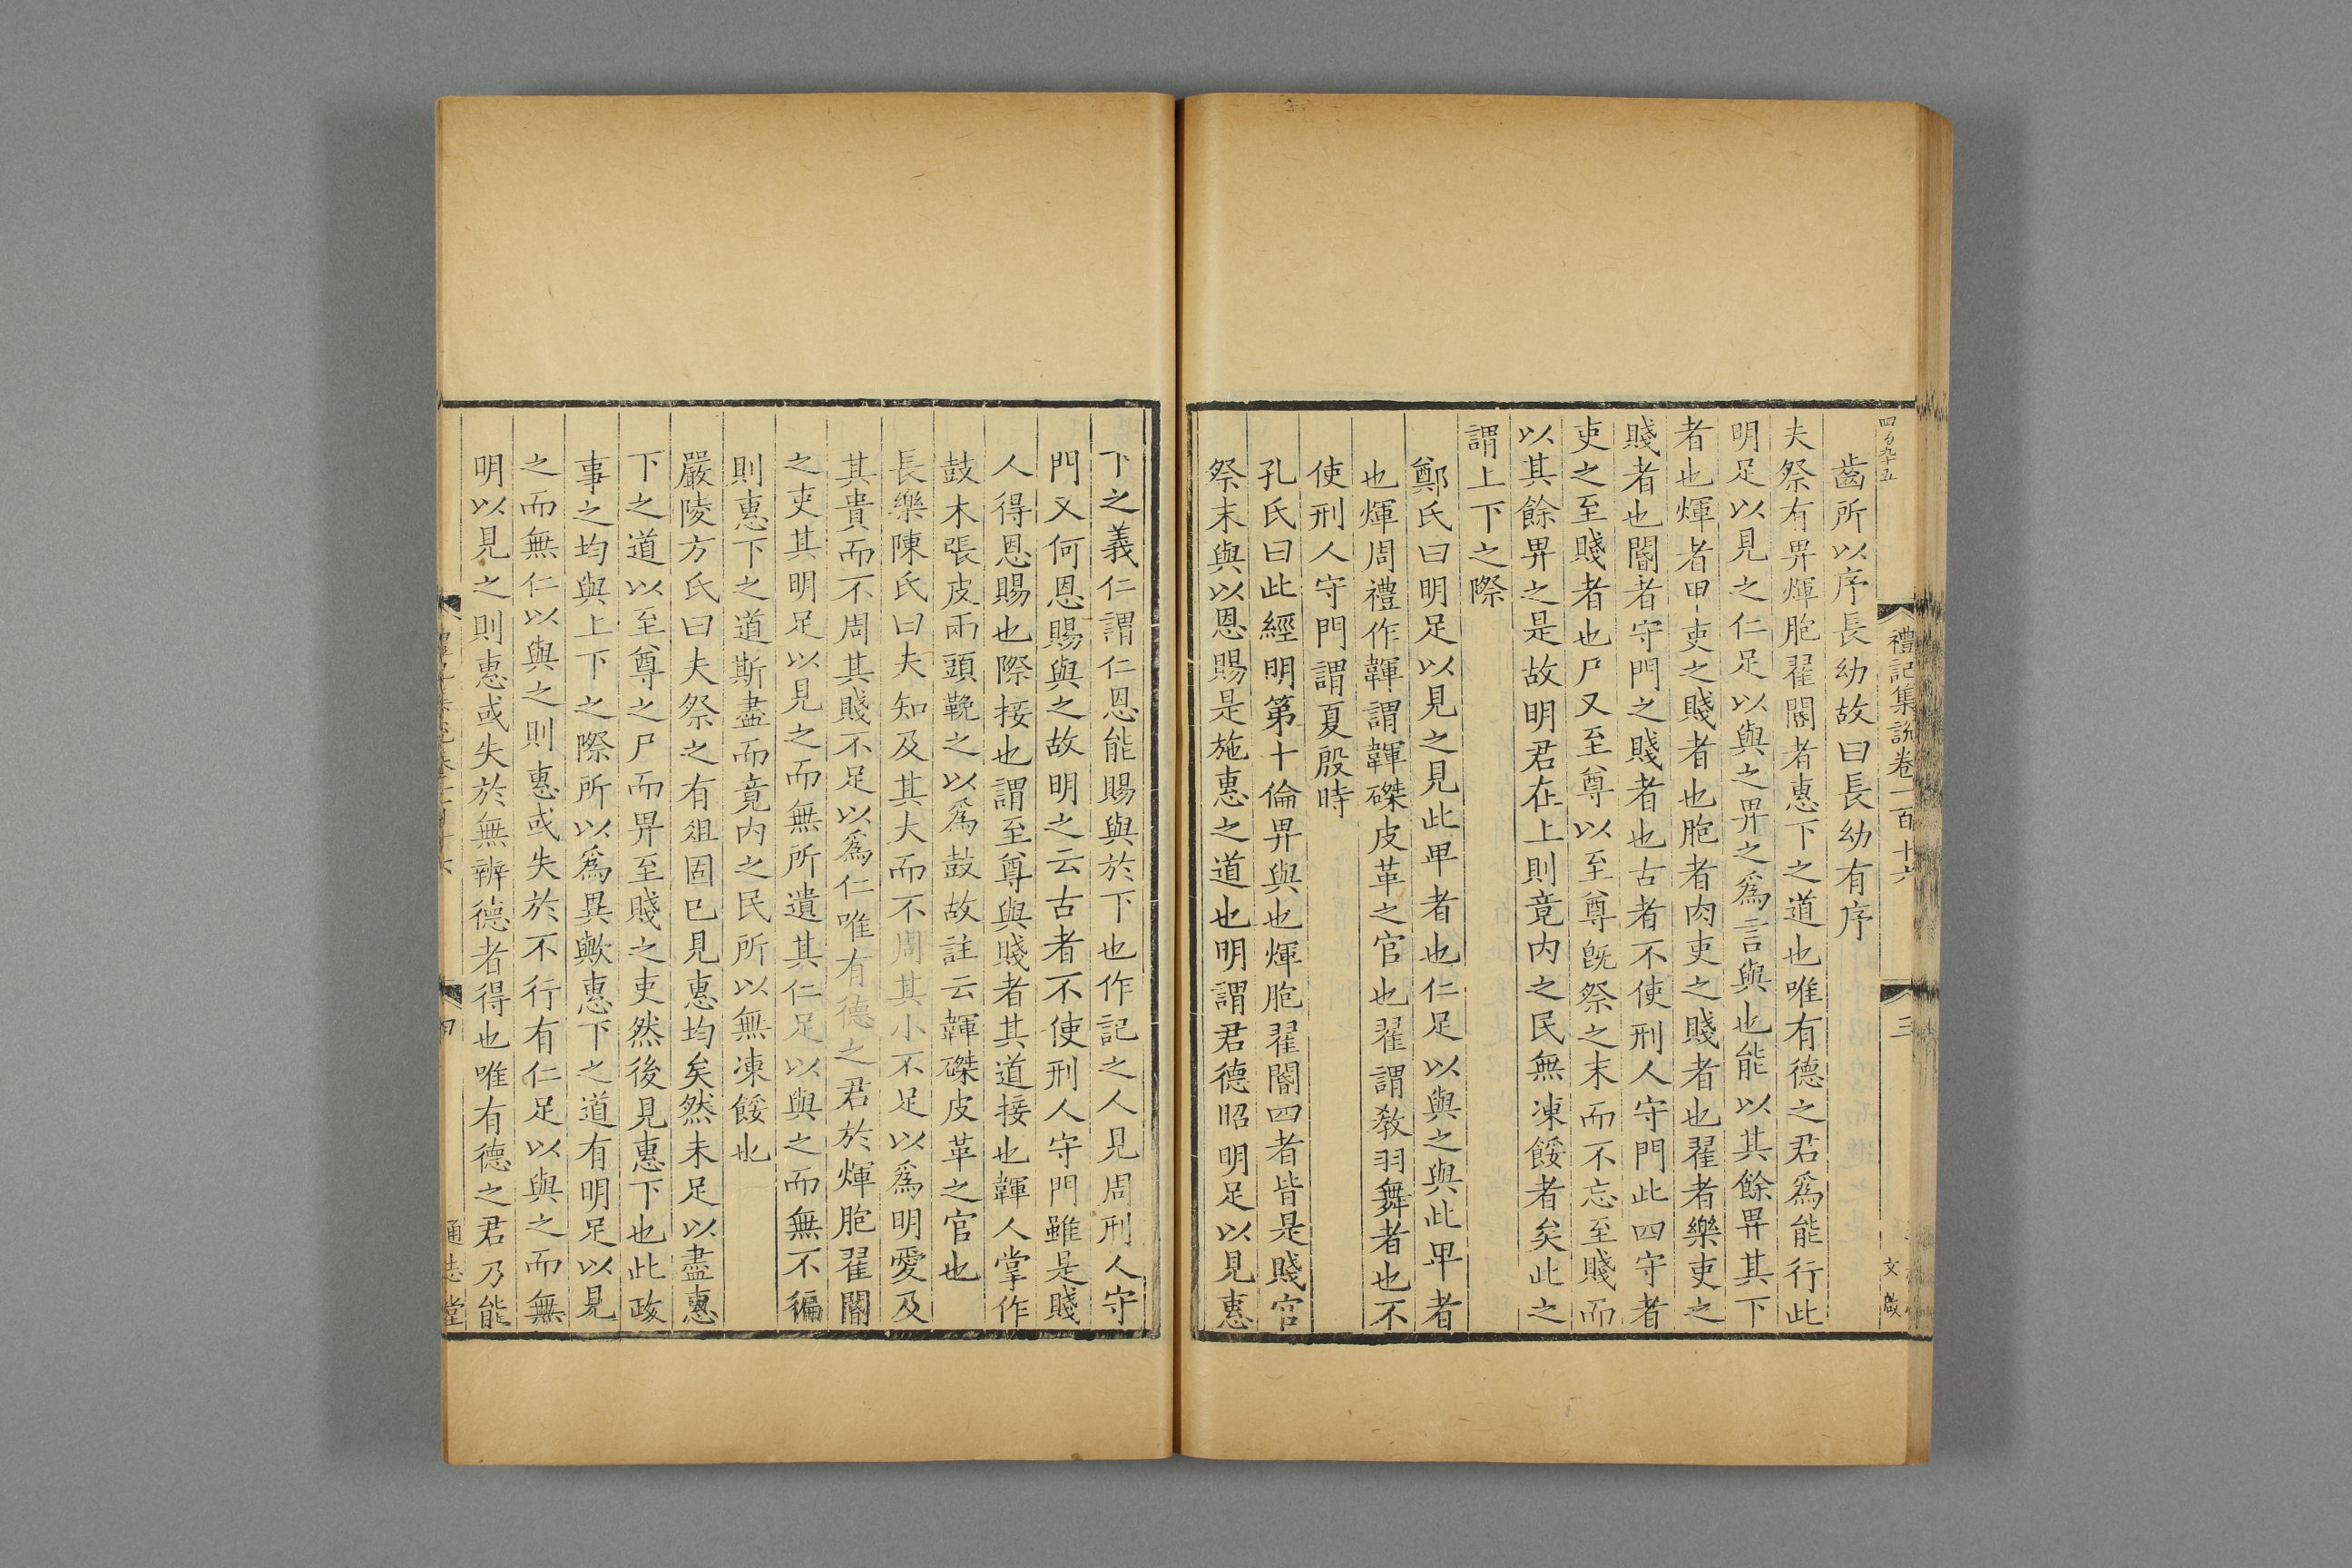 四百九十五
禮記集說卷一百十六
三
文啟
齒所以序長幼故曰長幼有序
夫祭有畀煇胞翟閽者惠下之道也唯有德之君爲能行此
明足以見之仁足以與之畀之爲言與也能以其餘畀其下
者也煇者甲吏之賤者也胞者肉吏之賤者也翟者樂吏之
賤者也閽者守門之賤者也古者不使刑人守門此四守者
吏之至賤者也尸又至尊以至尊既祭之末而不忘至賤而
以其餘畀之是故明君在上則竟内之民無凍餒者矣此之
謂上下之際
鄭氏曰明足以見之見此卑者也仁足以與之與此卑者
也煇周禮作韗謂韗磔皮革之官也翟謂敎羽舞者也不
使刑人守門謂夏殷時
孔氏曰此經明第十倫畀與也煇胞翟閽四者皆是賤官
祭末與以恩賜是施惠之道也明謂君德昭明足以見惠
下之義仁謂仁恩能賜與於下也作記之人見周刑人守
門又何恩賜與之故明之云古者不使刑人守門雖是賤
人得恩賜也際接也謂至尊與賤者其道接也韗人掌作
鼓木張皮兩頭鞔之以爲鼓故註云韗磔皮革之官也
長樂陳氏曰夫知及其大而不周其小不足以爲明愛及
其貴而不周其賤不足以爲仁唯有德之君於煇胞翟閽
之吏其明足以見之而無所遺其仁足以與之而無不徧
則惠下之道斯盡而竟内之民所以無凍餒也
嚴陵方氏曰夫祭之有俎固已見惠均矣然未足以盡惠
下之道以至尊之尸而畀至賤之吏然後見惠下也此政
事之均與上下之際所以爲異歟惠下之道有明足以見
之而無仁以與之則惠或失於不行有仁足以與之而無
明以見之則惠或失於無辨德者得也唯有德之君乃能
四
通志堂